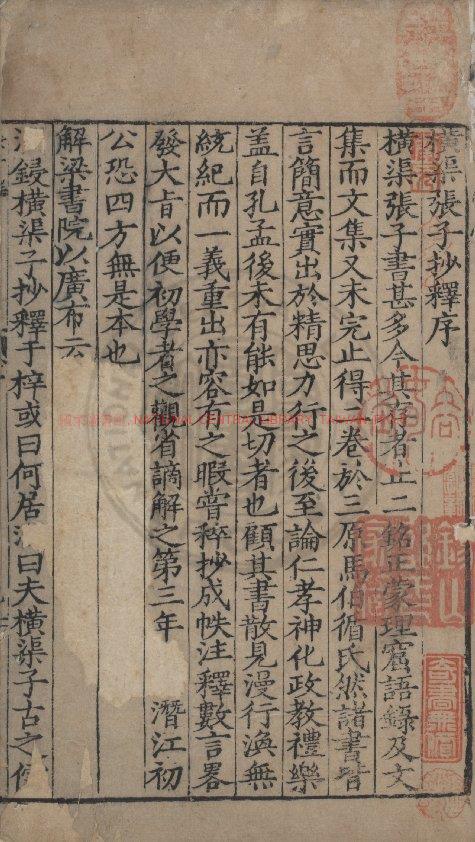 橫渠張子抄釋序
橫渠張子書甚多今其存者止二銘正蒙理窟語錄及文
集而文集又未完止得一卷於三原馬伯循氏然諸書皆
言簡意實出於精思力行之後至論仁孝神化政教禮樂
蓋自孔孟後未有能如是切者也顧其書散見漫行渙無
統紀而一義重出亦容有之暇嘗稡抄成帙注釋數言畧
發大旨以便初學者之觀省謫解之第三年 潛江初
公恐四方無是本也
解梁書院以廣布云
鋟橫渠子抄釋于梓或曰何居 曰夫橫渠子古之
國家圖書館 NATIONAL CENTRAL LIBRARY, TAIWAN